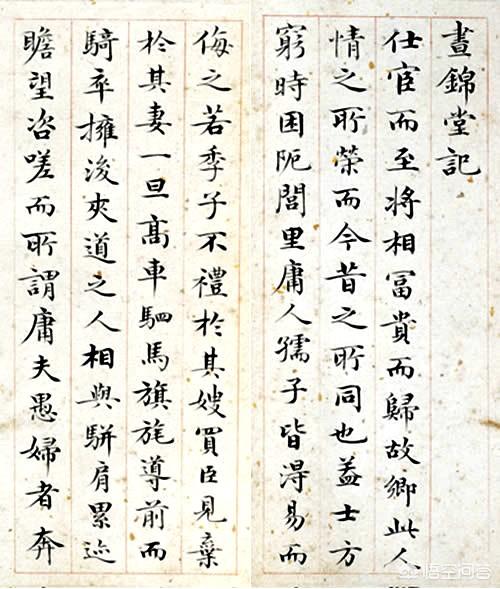 晝錦堂記
仕宦而至將相冨貴而歸故鄉此人
情之所榮而今昔之所同也蓋士方
窮時困阨閭里庸人孺子皆得易而
侮之若季子不禮於其嫂買臣見棄
於其妻一旦髙車駟馬旗旄導前而
騎卒擁後夾道之人相與駢肩累迹
瞻望咨嗟而所謂庸夫愚婦者奔
悟空问答